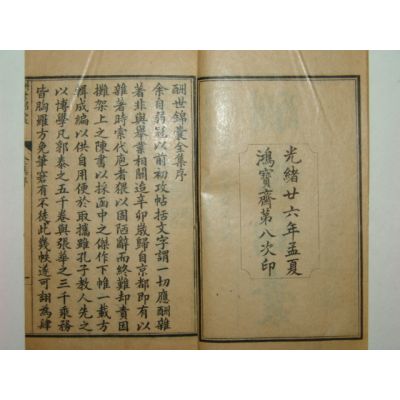 光緒廿六年孟夏
鴻寶齋第八次印
酬世錦囊全集序
余自弱冠以前初攻帖括文字謂一切應酬雜
著非與舉業相關造辛卯歲歸自京都即有以
雜著時索代庖者猥以固陋辭而終難却責因
攤架上之陳書以採函中之傑作下帷一載方
輯成編以供自用便於取攜雖孔子教人先之
以博學凡郭泰之五千卷與張華之三千乘務
皆胸羅方免筆窘有不徒此幾帙遂可詡為肆